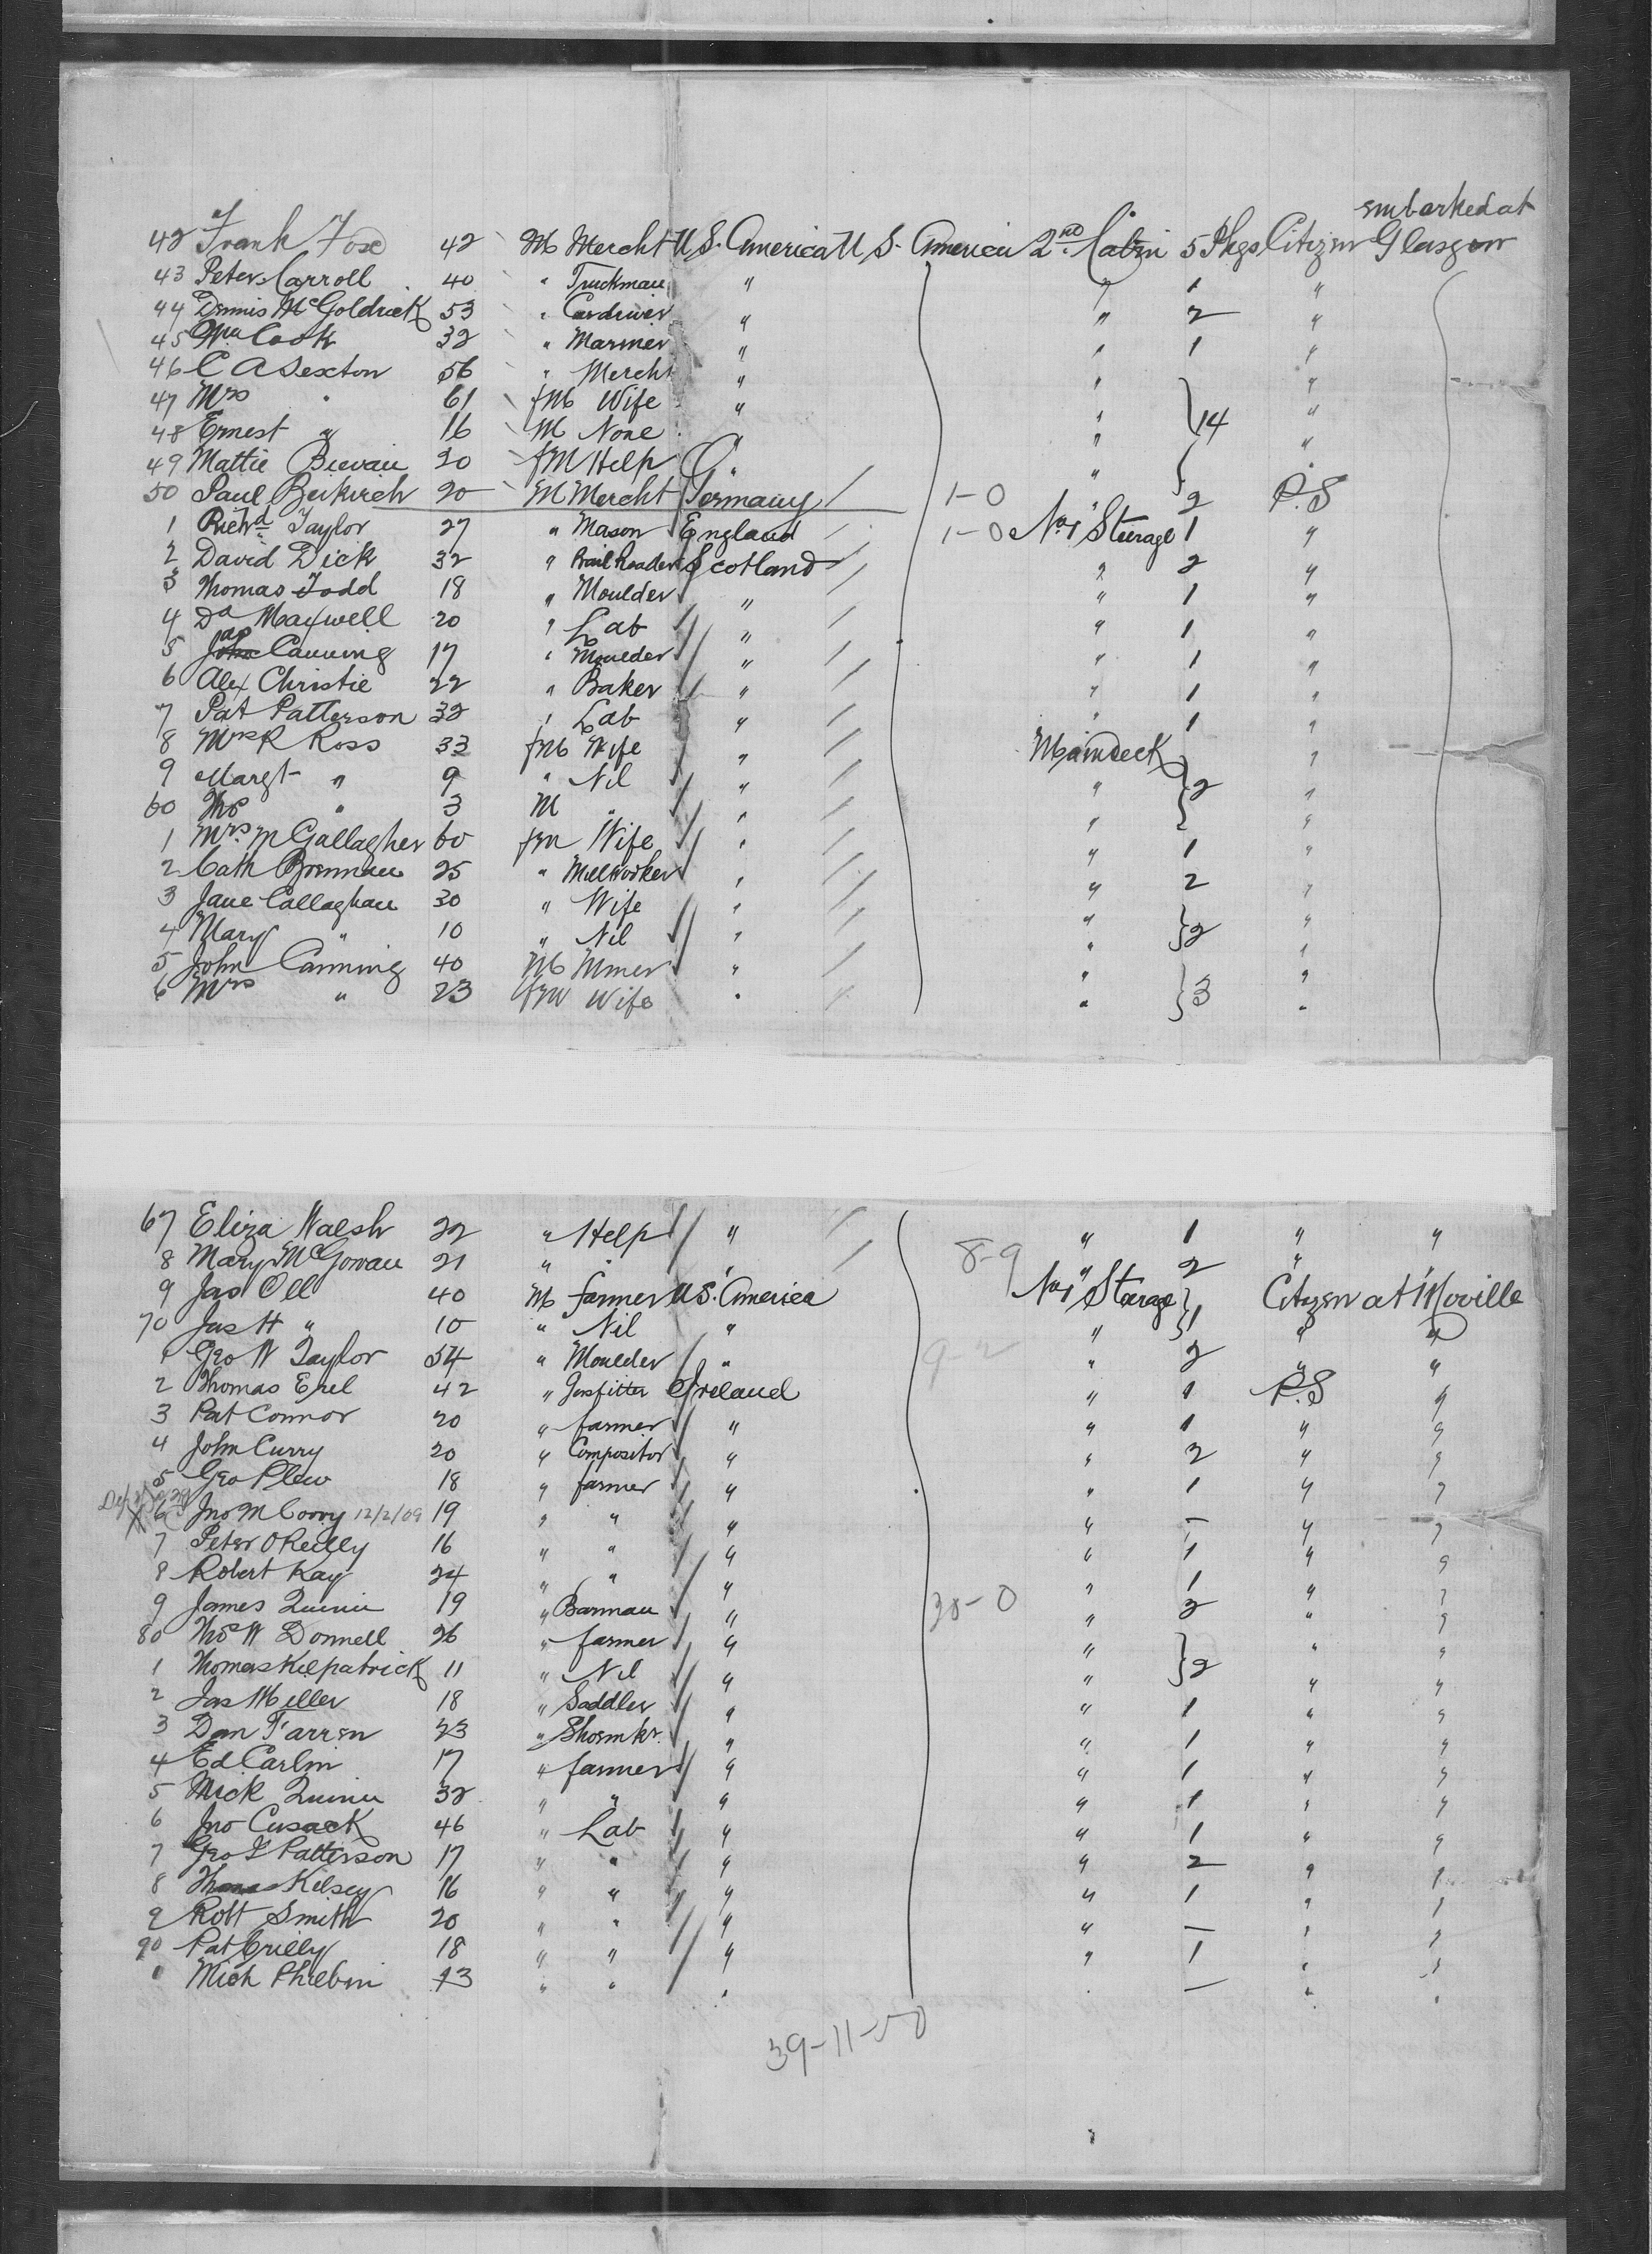 embarked at
42 Frank Fox 42 M Mercht U.S. America U.S. America 2nd Cabin 5 Pkgs Citizen Glasgow
43 Peter Carroll 40 " Truckman " " 1 "
44 Dennis McGoldrick 53 " Cardriver " " 2 "
45 Wm Cook 32 " Mariner " " 1 "
46 C A Sexton 56 " Mercht " " "
47 Mrs " 61 fM Wife " " } 14 "
48 Ernest " 16 M None " " "
49 Mattie 20 fM Help " " "
50 Paul Beikirch 20 M Mercht Germany / 1-0 " 2 P.S
1 Richd Taylor 27 " Mason England / 1-0 No 1 Steerage 1 "
2 David Dick 32 " Rail Roader Scotland / " 2 "
3 Thomas Todd 18 " Moulder " / " 1 "
4 Dd Maxwell 20 " Lab " / " 1 "
5 Jas Canning 17 " Moulder " / " 1 "
6 Alex Christie 22 " Baker " / " 1 "
7 Pat Patterson 32 " Lab " / " 1 "
8 Mrs R Ross 33 fM Wife " / Maindeck "
9 Margt " 9 " Nil " / " } 2 "
60 Ths " 3 M " " / " "
1 Mrs M Gallagher 60 fM Wife " / " 1 "
2 Cath Brennan 25 " Millworker " / " 2 "
3 Jane Callaghan 30 " Wife " / " "
4 Mary " 10 " Nil " / " } 2 "
5 John Canning 40 M Miner " / " "
6 Mrs " 23 fM Wife " / " } 3 "
67 Eliza Walsh 22 " Help " / " 1 " "
8 Mary McGowan 21 " " " / 8-9 " 2 " "
9 Jas Ell 40 M farmer U.S. America No 1 Steerage Citizen at Moville
70 Jas H " 10 " Nil " " } 1 " "
1 Geo W Taylor 54 " Moulder " 9-2 " 2 " "
2 Thomas 42 " Gasfitter Ireland " 1 P.S "
3 Pat Connor 20 " farmer " " 1 " "
4 John Curry 20 " Compositor " " 2 " "
5 Geo Plew 18 " farmer " " 1 " "
6 Jno McCorry 12/2/09 19 " " " " — " "
7 Peter OReilly 16 " " " " 1 " "
8 Robert Kay 24 " " " " 1 " "
9 James Quinn 19 " Barman " 30-0 " 2 " "
80 Ths W Donnell 26 " farmer " " " "
1 Thomas Kilpatrick 11 " Nil " " } 2 " "
2 Jas Miller 18 " Saddler " " 1 " "
3 Dan Farren 23 " Shoemkr " " 1 " "
4 Ed Carlin 17 " farmer " " 1 " "
5 Mick Quinn 32 " " " " 1 " "
6 Jno Cusack 46 " Lab " " 1 " "
7 Geo Patterson 17 " " " " 2 " "
8 Kelsey 16 " " " " 1 " "
9 Robt Smith 20 " " " " — " "
90 Pat Crilly 18 " " " " 1 " "
1 Mich Philbin " " " " — " "
39-11-50